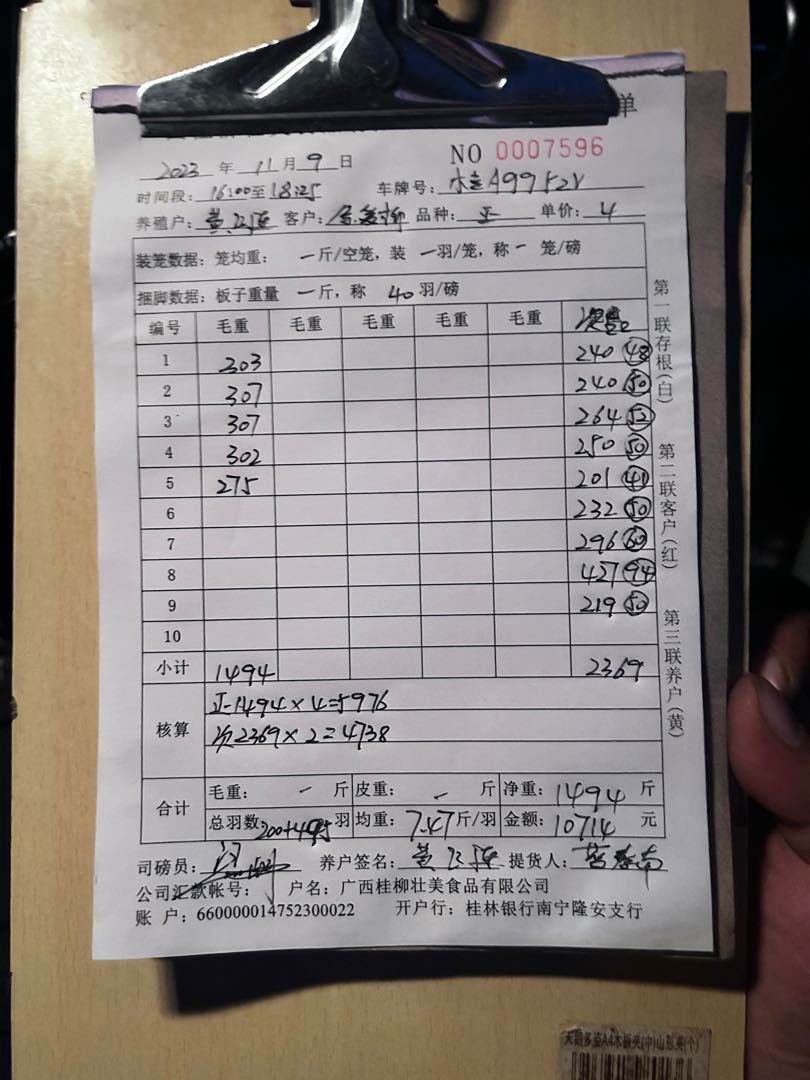 单
NO 0007596
2023 年 11 月 9 日
时间段: 16:00 至 18:25 车牌号: 桂A99F2V
养殖户: 黄 客户: 品种: 正 单价: 4
装笼数据: 笼均重: 一 斤/空笼, 装 一 羽/笼, 称 一 笼/磅
捆脚数据: 板子重量 一 斤, 称 40 羽/磅
编号 毛重 毛重 毛重 毛重 毛重
1 303 240 48
2 307 240 50
3 307 264 52
4 302 250 50
5 275 201 41
6 232 50
7 296 60
8 427 94
9 219 50
10
小计 1494 2369
核算 正-1494×4=5976
次2369×2=4738
合计 毛重: 一 斤 皮重: 一 斤 净重: 1494 斤
总羽数: 200+495 羽 均重: 7.47 斤/羽 金额: 10714 元
司磅员: 养户签名: 黄 提货人:
公司汇款帐号: 户名: 广西桂柳壮美食品有限公司
账 户: 660000014752300022 开户行: 桂林银行南宁隆安支行
第一联存根(白) 第二联客户(红) 第三联养户(黄)
天韵多姿A4木板夹(中)山形夹(个)